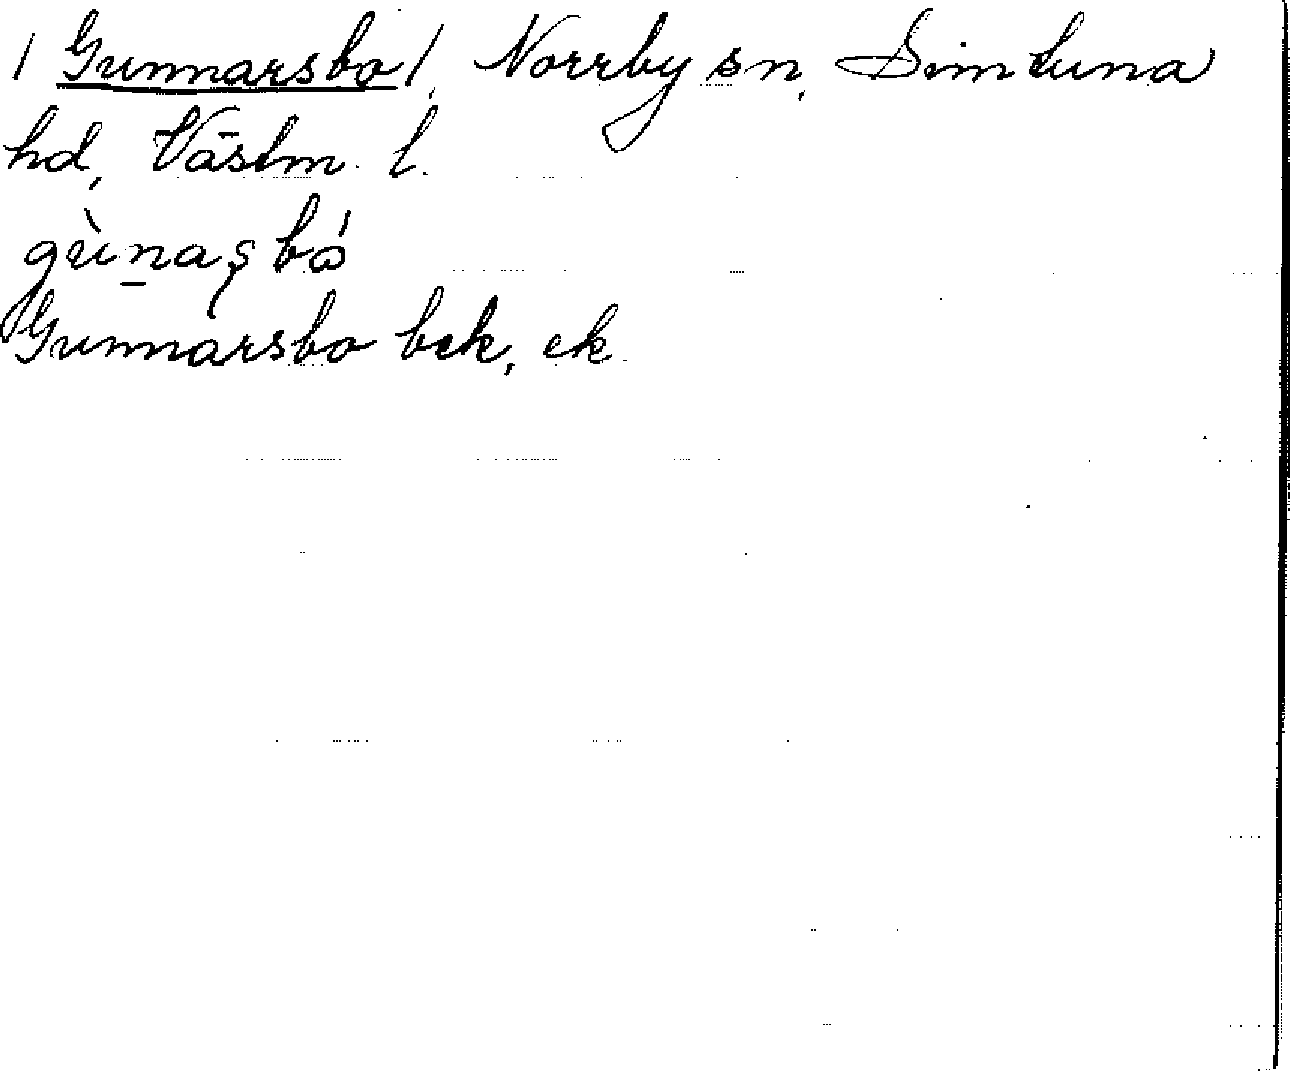 / Gunnarsbo /, Norrby sn, Simtuna
hd, Västm. l.
gùn̲aʂbó
Gunnarsbo bek, ek.